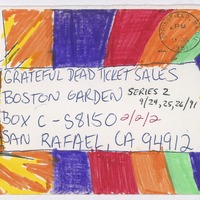 GRATEFUL DEAD TICKET SALES
BOSTON GARDEN SERIES 2
9/24,25,26/91
BOX C-S8150 2/2/2
SAN RAFAEL, CA 94912